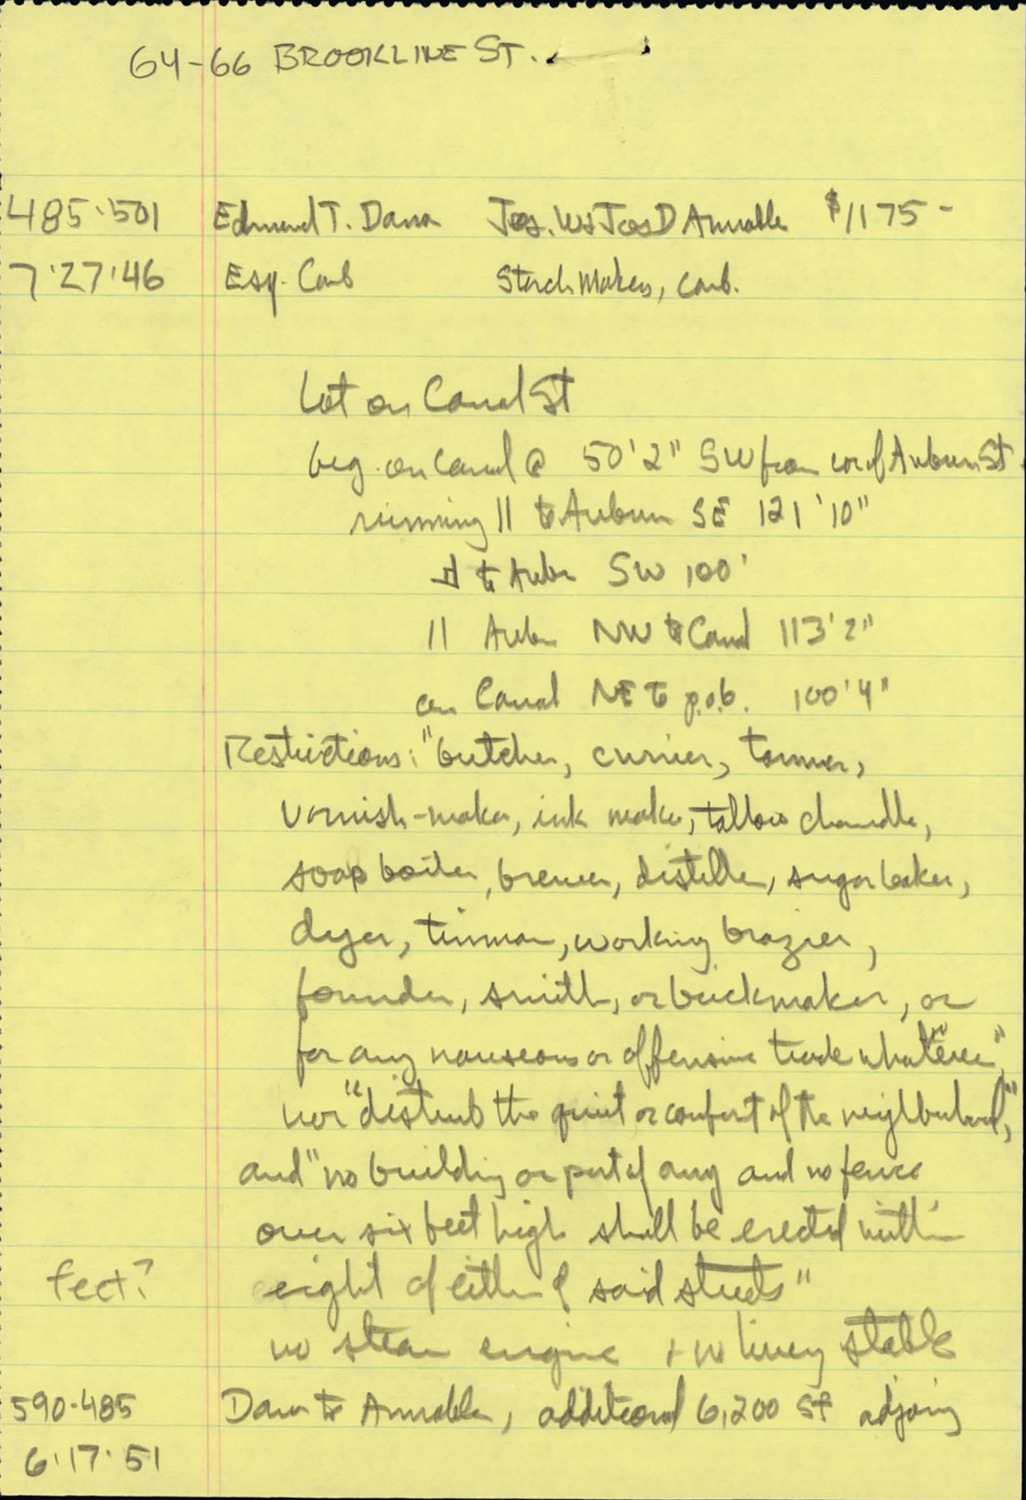 64-66 BROOKLINE ST.
485·501 Edmund T. Dana Jos. W & Jos D Annable $1175-
7·27·46 Esq. Camb Starch Makers, Camb.
Lot on Canal St
beg. on Canal @ 50'2" SW from cor of Auburn St.
running || to Auburn SE 121'10"
to Aubn SW 100'
|| Aubn NW to Canal 113'2"
on Canal NE to p.o.b. 100'4"
Restrictions: "butcher, currier, tanner,
varnish-maker, ink maker, tallow chandler,
soap boiler, brewer, distiller, sugar baker,
dyer, tinman, working brazier,
founder, smith, or brickmaker, or
for any nauseous or offensive trade whatever",
nor "disturb the quiet or comfort of the neighborhood,"
and "no building or part of any and no fence
over six feet high shall be erected within
feet? eight of either of said streets"
no steam engine + no livery stable
590-485 Dana to Annable, additional 6,200 SF adjoing
6·17·51